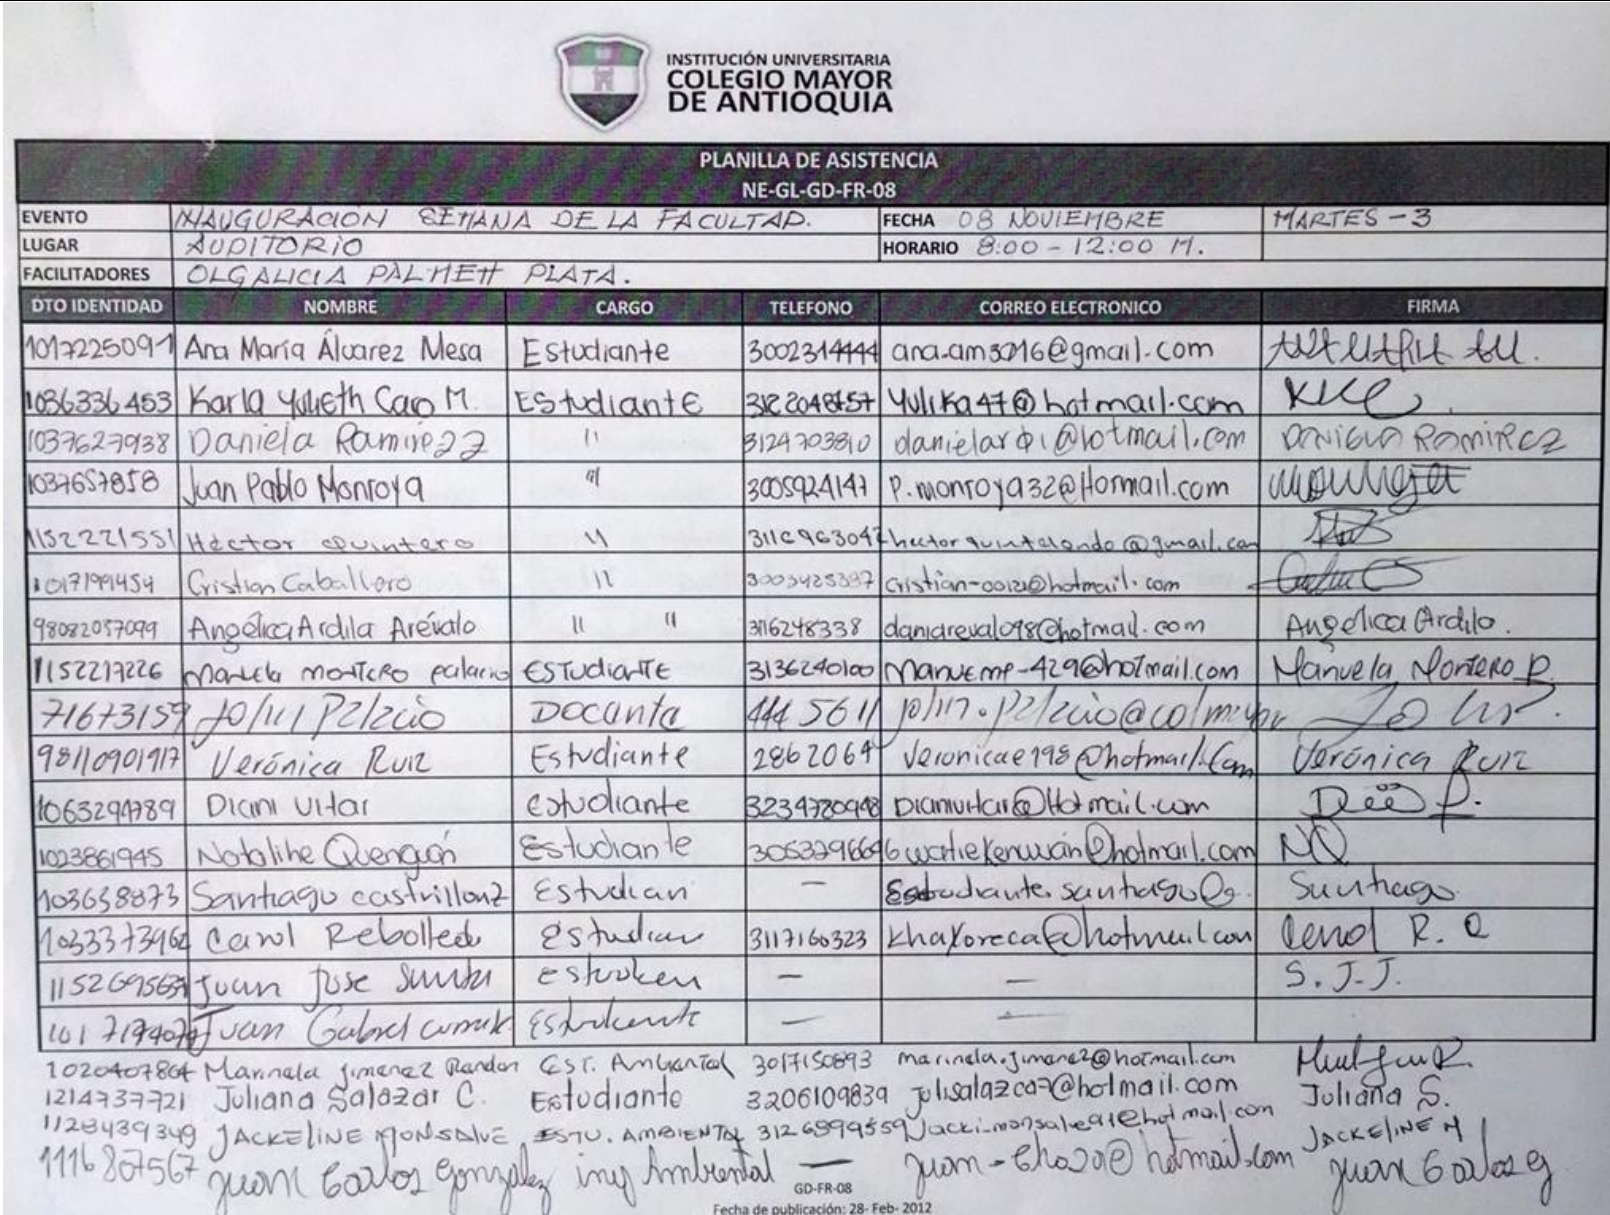 INSTITUCIÓN UNIVERSITARIA
COLEGIO MAYOR
DE ANTIOQUIA
PLANILLA DE ASISTENCIA
NE-GL-GD-FR-08
EVENTO INAUGURACIÓN SEMANA DE LA FACULTAD. FECHA 08 NOVIEMBRE MARTES-3
LUGAR AUDITORIO HORARIO 8:00-12:00 M.
FACILITADORES OLGALICIA PALMETT PLATA.
DTO IDENTIDAD NOMBRE CARGO TELEFONO CORREO ELECTRONICO FIRMA
1017225091 Ana María Álvarez Mesa Estudiante 3002314444 ana.am3016@gmail.com
1036336453 Karla Yulieth Caro M. Estudiante Yulika47@hotmail.com
1037627938 Daniela Ramirez " 3124703810 Daniela Ramirez
1037657858 Juan Pablo Monroya " 3005924147 P.monroya32@Hormail.com
1152221551 Héctor Quintero "
1017191454 Cristian Caballero " cristian-0012@hotmail.com
98082057099 Angélica Ardila Arévalo " " 3116248338 daniarevalo98@hotmail.com Angélica Ardila.
1152217226 Manuela montero palacio ESTUDIANTE 3136240100 Manuemp-429@hotmail.com Manuela Montero P.
71673159 Docente 444 5611
98110901917 Verónica Ruiz Estudiante 2862064 Veronicae198@hotmail.com Verónica Ruiz
1063294789 Estudiante
1023861945 Estudiante NQ
103638873 Santiago castrillon Estudian — Estudiante.santiago Santiago
Carol Rebolledo Estudian 3117160323 Carol R.
Juan Jose — — S.J.J.
Juan Gabriel Estudiante — —
1020407864 Marinela Jimenez Rendon EST. Ambiental 3017150893 marinela.jimenez@hotmail.com
1214737721 Juliana Salazar C. Estudiante 3206109839 julisalazca7@hotmail.com Juliana S.
1128439349 JACKELINE MONSALVE ESTU. AMBIENTAL 3126899559 Jacki-monsalve91@hotmail.com JACKELINE M
1116807567 Juan Carlos Gonzalez ing Ambiental — hotmail.com Juan Carlos g
GD-FR-08
Fecha de publicación: 28- Feb- 2012